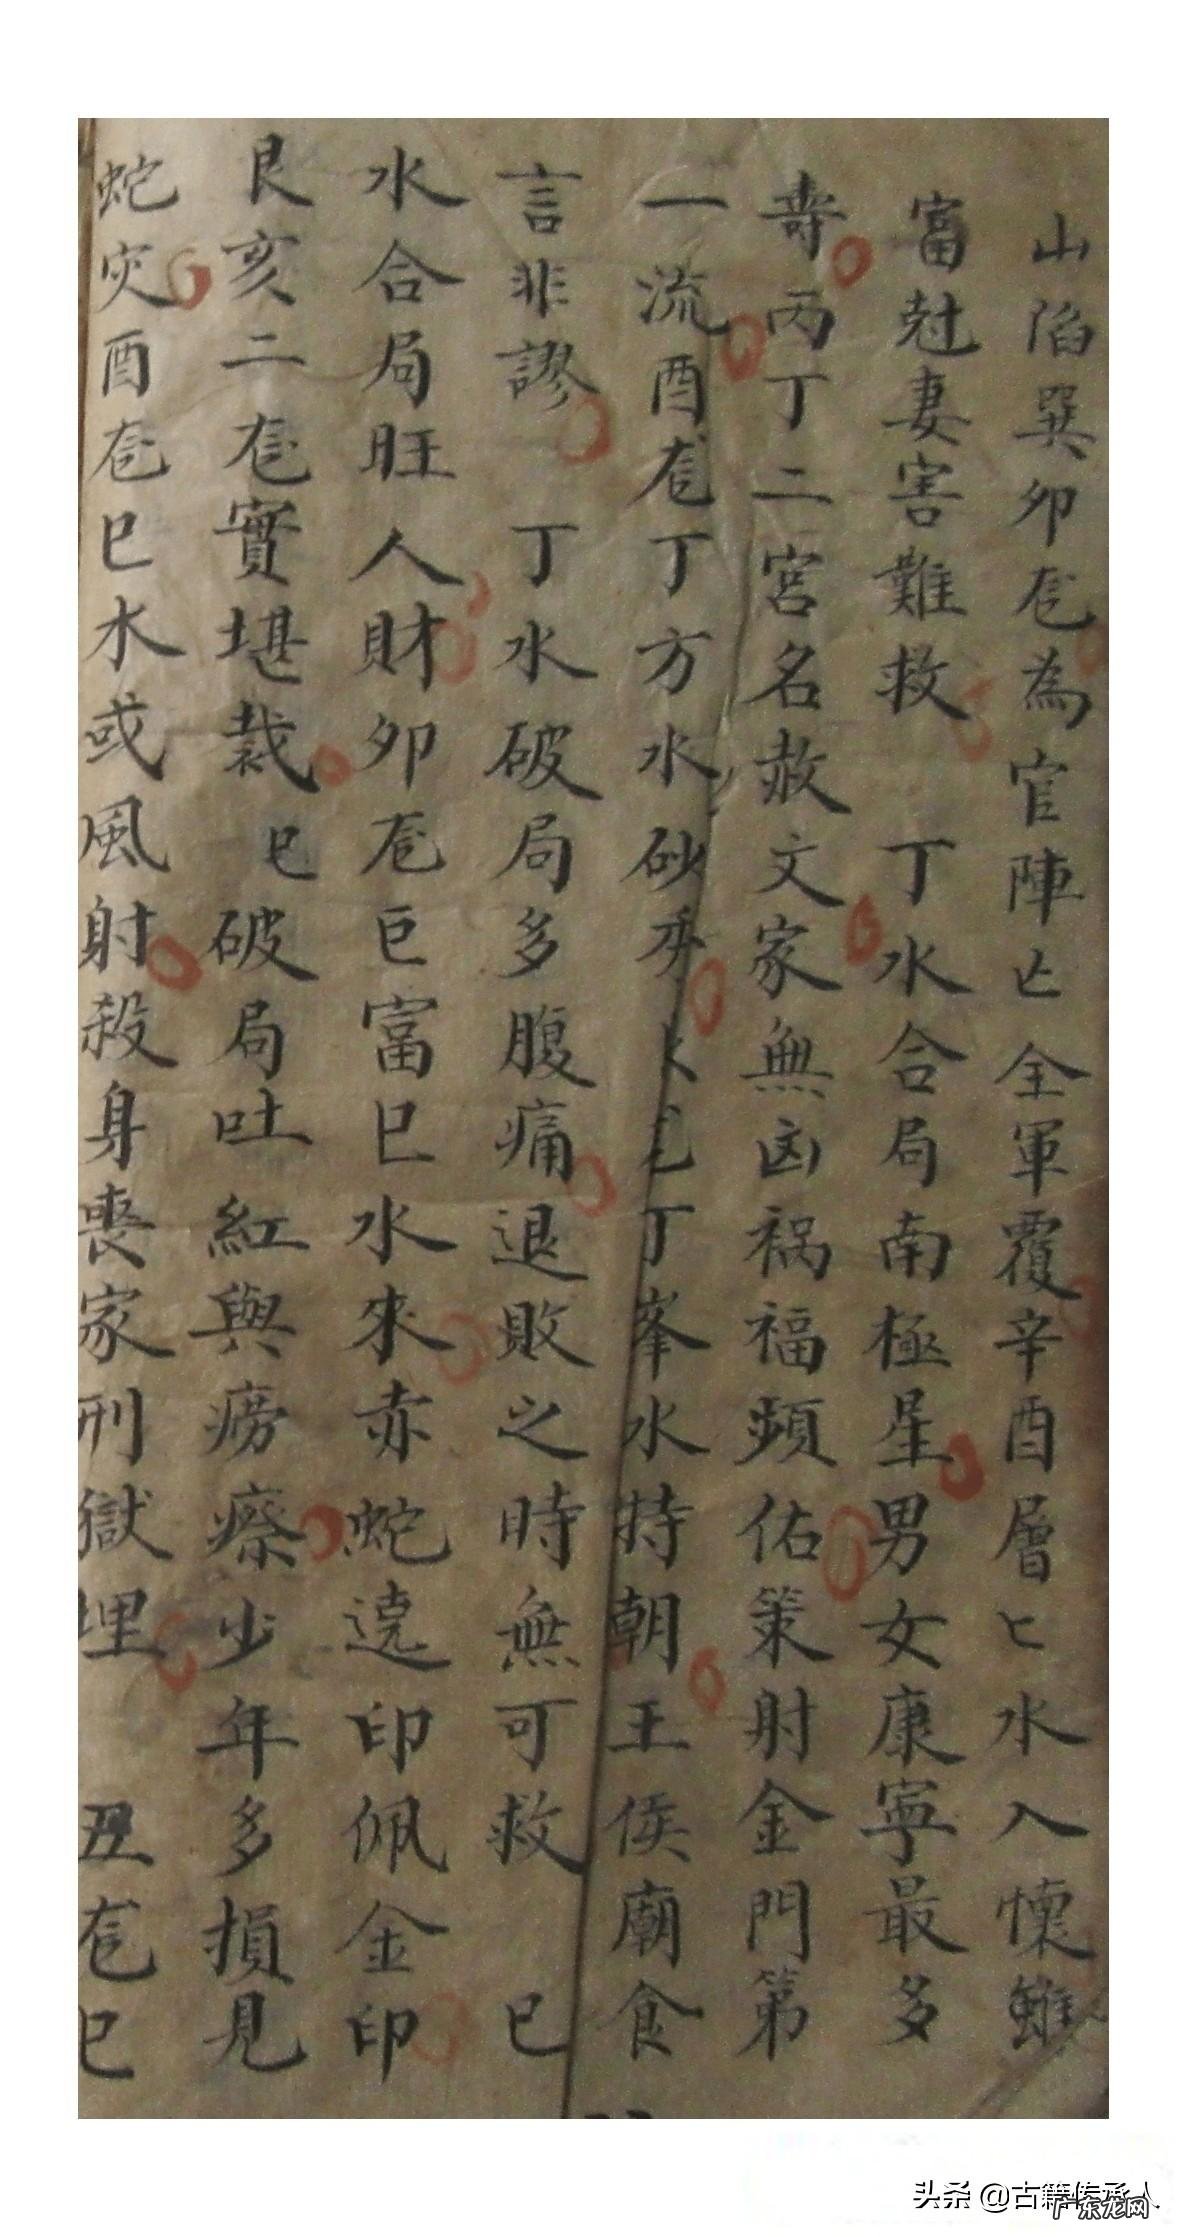 山陷巽卯庬為官陣亡全軍覆辛酉層匕水入懷雖
富尅妻害難救 丁水合局南極星男女康寧最多
壽丙丁二宮名赦文家無凶禍福頻佑策射金門第
一流酉庬丁方水砂秀丁峯水特朝王侯廟食
言非謬 丁水破局多腹痛退敗之時無可救 巳
水合局旺人財卯庬巨富巳水來赤蛇遶印佩金印
艮亥二庬實堪裁 巳破局吐紅與癆瘵少年多損見
蛇灾酉庬巳水或風射殺身喪家刑獄埋 丑庬巳
头条 @古籍传承人
广东龙网